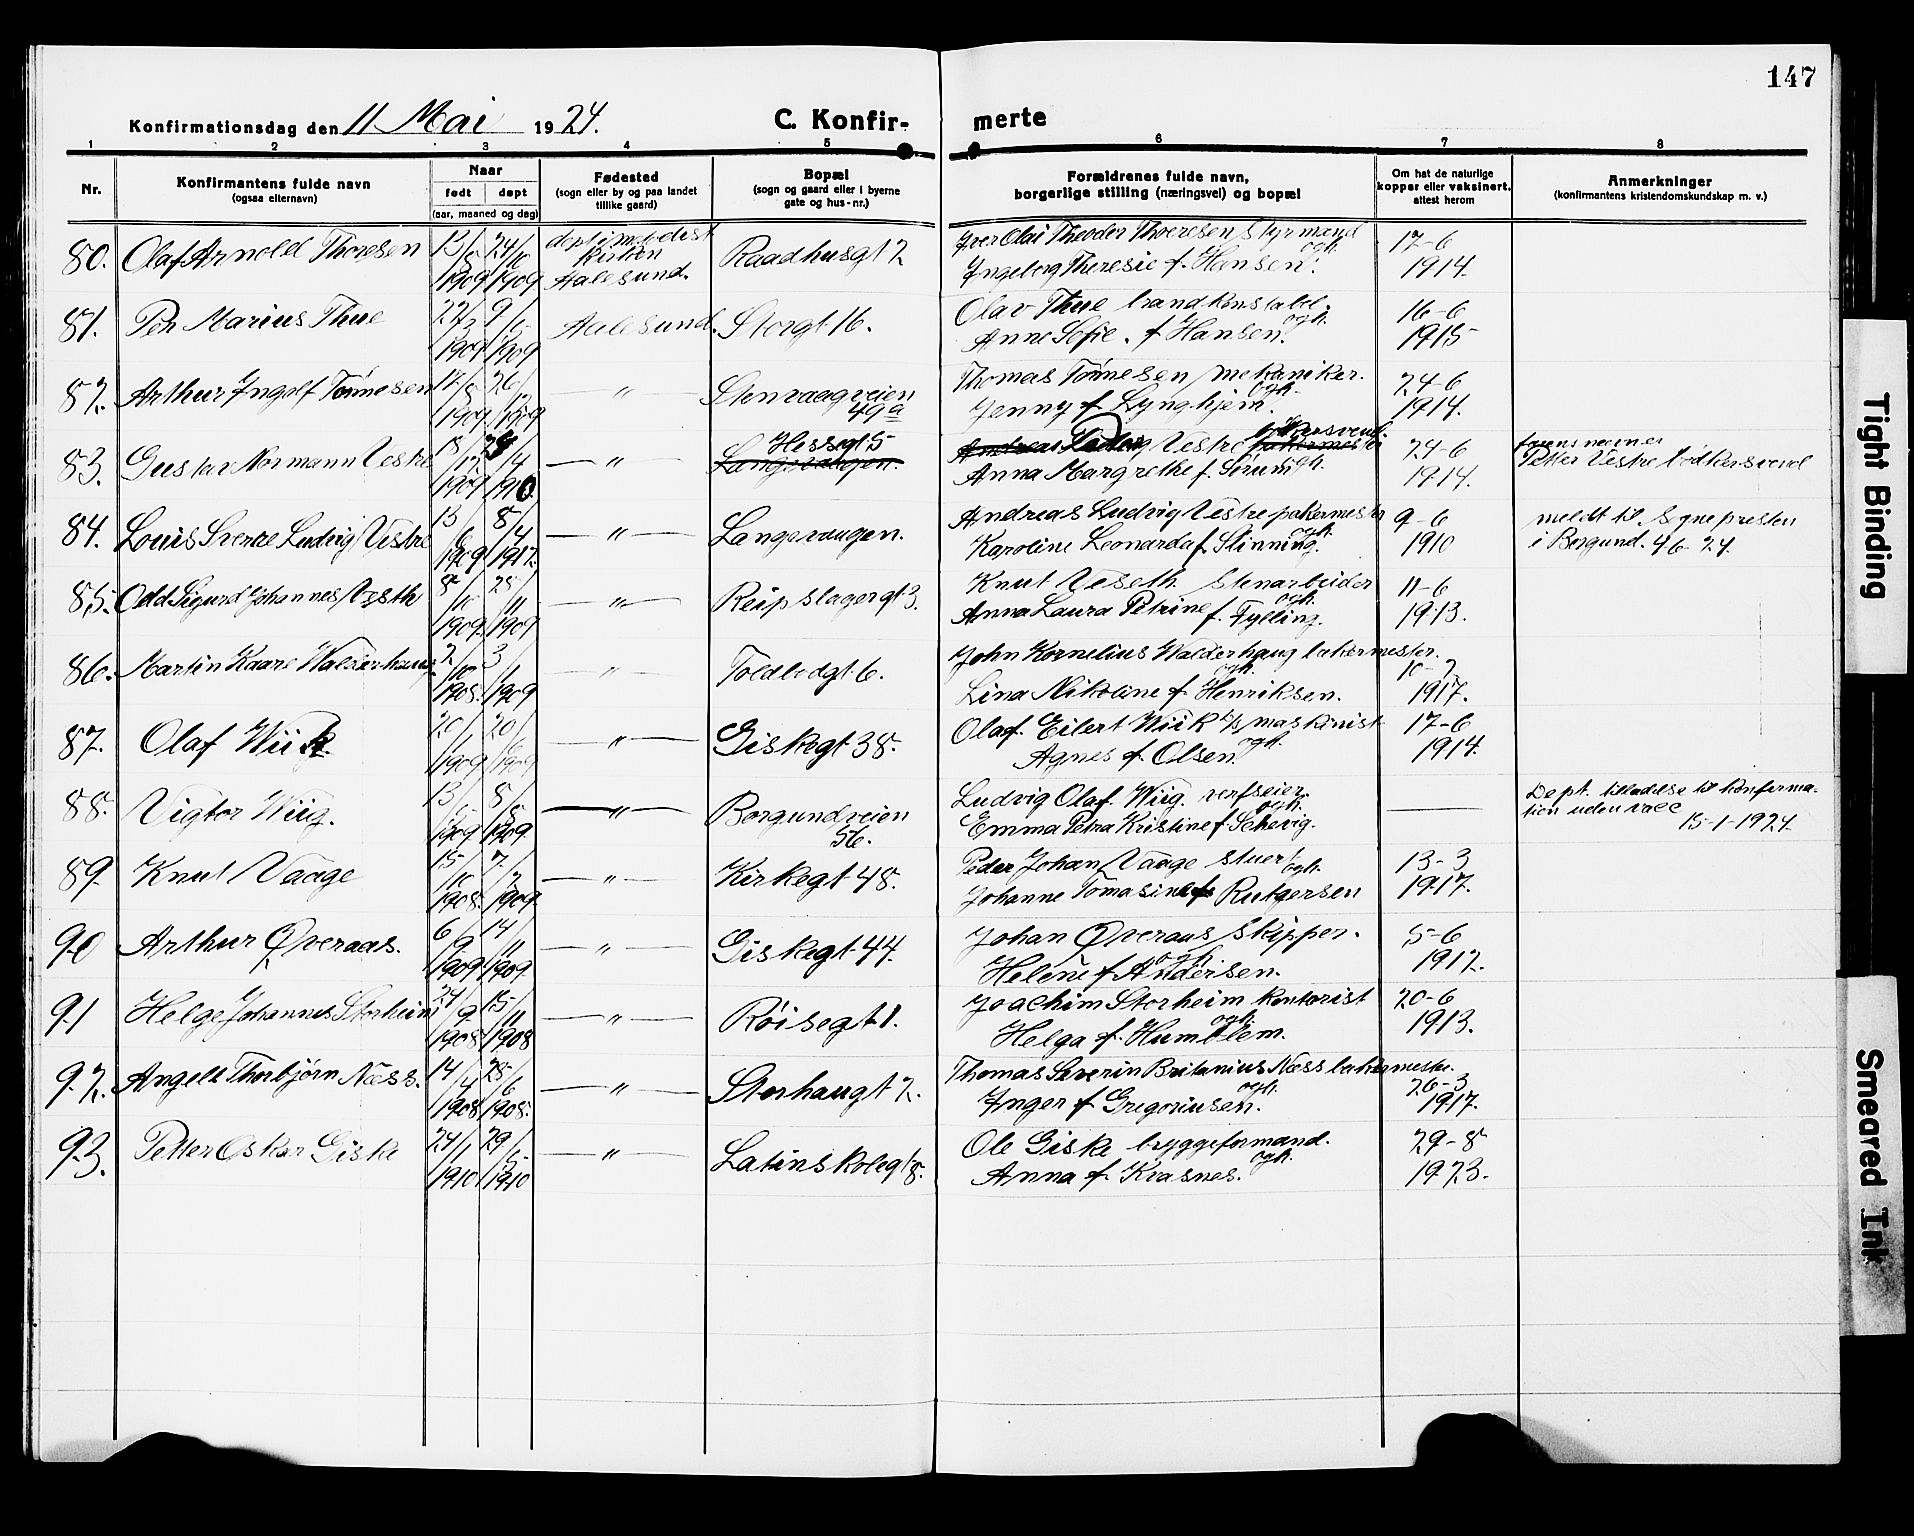 147
Konfirmationsdag den 11 Mai 1924.
C. Konfirmerte
1 2 3 4 5 6 7 8
Nr.
Konfirmantens fulde navn
(ogsaa elternavn)
Naar
født døpt
(aar, maaned og dag)
Fødested
(sogn eller by og paa landet
tillike gaard)
Bopæl
(sogn og gaard eller i byerne
gate og hus-nr.)
Forældrenes fulde navn,
borgerlige stilling (næringsvei) og bopæl
Om hat de naturlige
kopper eller vaksinert,
attest herom
Anmerkninger
(konfirmantens kristendomskundskap m. v.)
80. Olaf Arnold Thoresen 1909 24/ 1909 Aalesund. Raadhusgt 2 Iver Olai Theodor Thoresen Styrmand 17-6
Ingeborg Theresie f. Hansen. ogh. 1914.
81. Per Marius Thue 1909 9/ 1909 Aalesund. Storgt 16. Olav Thue brandkonstabel. 16-6
Anne Sofie. f Hansen. ogh. 1915
82. Arthur Ingolf Tønnesen 1909 26/ 1909 — " — Stenvaagveien Thomas Tønnesen mekaniker. 24-6
49a Jenny f. Lynghjem. ogh. 1914.
83. Gustav Normann Vestre 1909 4 1910 — " — Hessgt 5 Andreas Ludvig Vestre 24-6 farens navn er
Langevaagen. Anna Margrethe f. Sørum ogh. 1914. Petter Vestre bødkersvend
84. Louis Sverre Ludvig Vestre 13/6 1909 8/4 1912. — " — Langevaagen. Andreas Ludvig Vestre 9-6 meldt til Sognepresten
Karoline Leonarda f. Slinning. ogh. 1910 i Borgund. 4-6-24.
85. Odd Sigurd Johannes Vesth 8/10 1909. 28/11 1909 — " — Reipslagergt 3. Knut Veseth Stenarbeider 11-6
Anna Laura Petrine f. Fylling. ogh. 1913.
86. Martin Kaare Walderhaug 2/10 1908. 3/1 1909 — " — Toldbodgt 6. John Kornelius Walderhaug
Lina Nikoline f. Henriksen. ogh. 1917.
87. Olaf Wiik 20/1 1909 20/6 1909 — " — Giskegt 38. Olaf Eilert Wiik maskinist 17-6
Agnes f. Olsen. ogh. 1914.
88. Vigtor Wiig. 13/ 1909 8/8 1909 — " — Borgundveien Ludvig Olaf. Wiig. verfseier. — Dept. tilladelse til konfirma-
56. Emma Petra Kristine f. Schevig. ogh. tion uden vacc 15-1-1924.
89. Knut Vaage 15/10 1908. 7/2 1909. — " — Kirkegt 48. Peder Johan Vaage Stuert ogh. 13-3
Johanne Tomasine f. Rutgersen 1917.
90 Arthur Øveraas. 6/9 1909 14/11 1909. — " — Giskegt 44. Johan Øveraas Skipper. 5-6
Helene f Andersen. ogh. 1912.
91 Helge Johannes Storheim 24/9 1908 15/11 1908 — " — Røisegt 1. Joachim Storheim Kontorist 20-6
Helga f. Humblem. ogh. 1913.
92. Angell Thorbjørn Næss. 14/4 1908 28/6 1908. — " — Storhaugt 2. Thomas Severin Britanius Næss
Inger f Gregoriusen. ogh. 26-3 1917.
93. Petter Oskar Giske 24/1 1910 29/5 1910 — " — Latinskolegt 8. Ole Giske bryggeformand. 29-8
Anna f. Krasnes. ogh. 1923.
Tight Binding
Smeared Ink